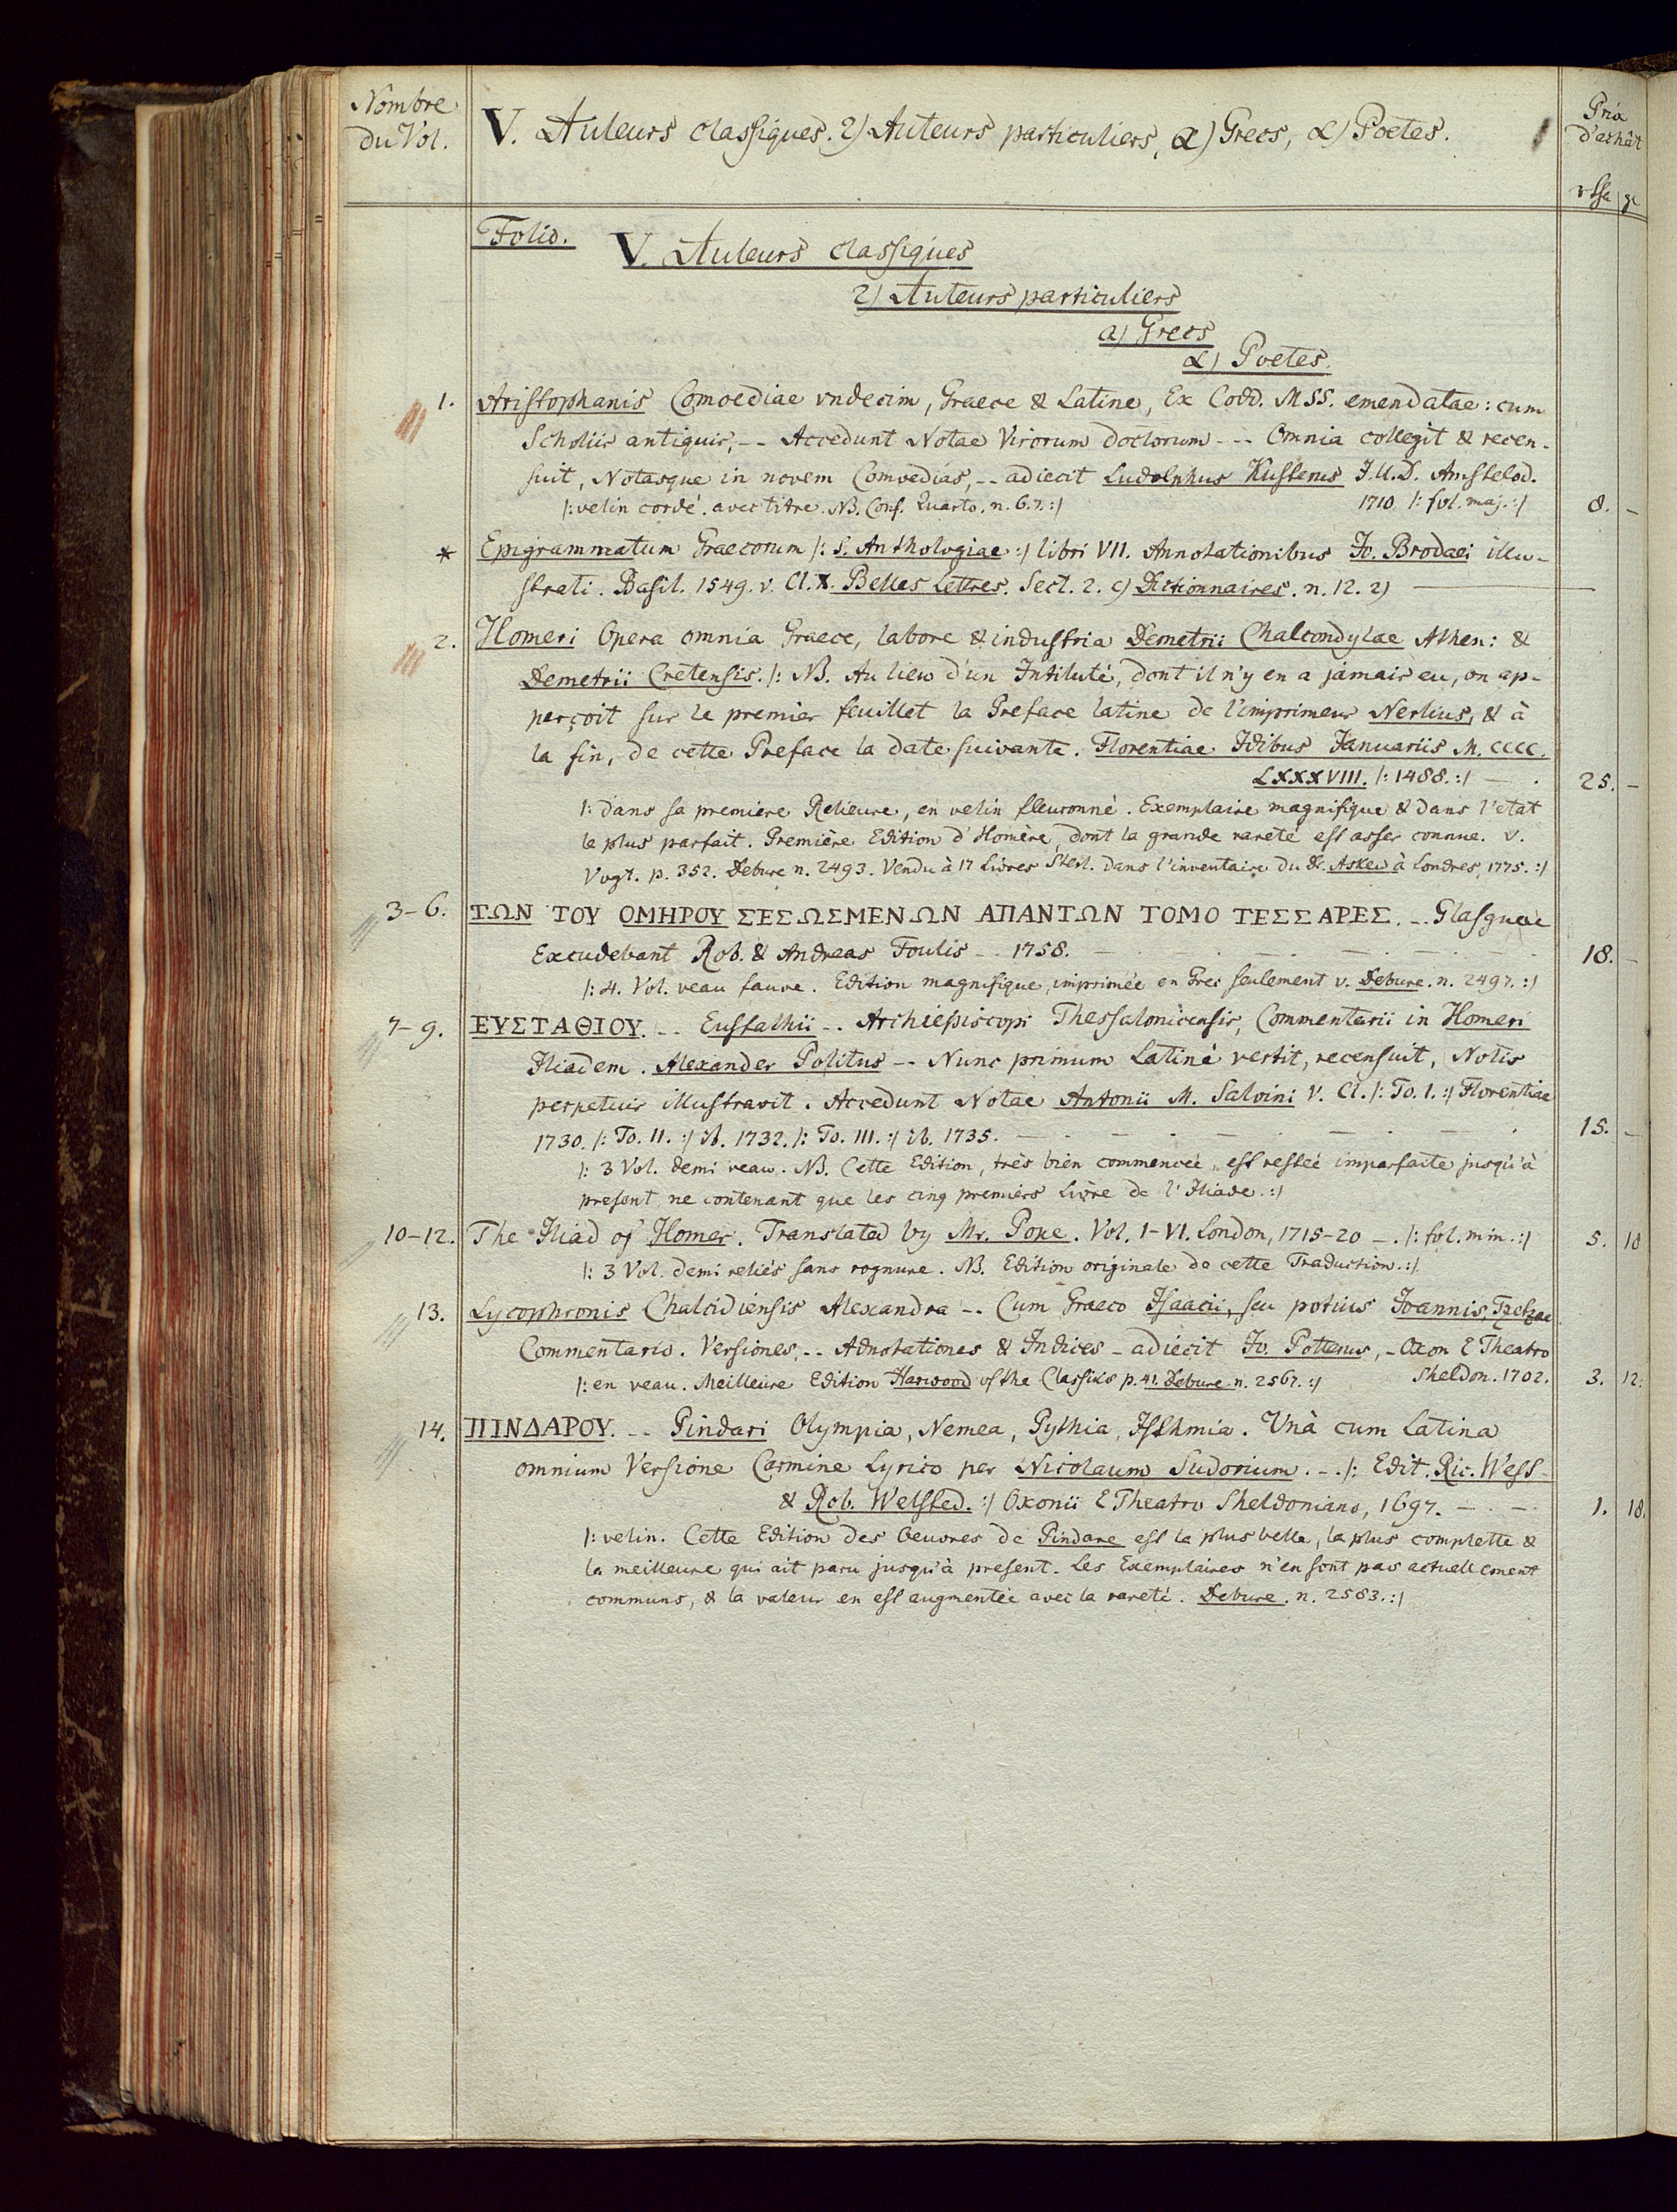 Nombre
du Vol.
V. Auteurs classiques. 2) Auteurs particuliers, a) Grecs, α) Poetes.
Prix
d'achât
rthl gr
Folio.
V. Auteurs classiques
2) Auteurs particuliers
a) Grecs
α) Poetes.
1. Aristophanis Comoediae vndecim, Graece & Latine, Ex Codd. MSS. emendatae: cum
Scholiis antiquis, -- Accedunt Notae Virorum doctorum --- Omnia collegit & recen-
suit, Notasque in novem Comoedias, -- adiecit Ludolphus Kusterus J.U.D. Amstelod.
/: velin cordé. avec titre. NB. Conf. Quarto. n. 6.7. :/ 1710 /: fol. maj. :/ 8. -
* Epigrammatum Graecorum /: S. Anthologiae :/ libri VII. Annotationibus Jo. Brodaei illu-
strati. Basil. 1549. v. Cl. X. Belles Lettres. Sect. 2. c) Dictionnaires. n. 12. 2)
2. Homeri Opera omnia Graece, labore & industria Demetrii Chalcondylae Athen: &
Demetrii Cretensis. /: NB. Au lieu d'un Intitulé, dont il n'y en a jamais eu, on ap-
perçoit sur le premier feuillet la Preface latine de l'imprimeur Nerlius, & à
la fin, de cette Preface la date suivante. Florentiae Idibus Januariis M. CCCC.
LXXXVIII. /: 1488. :/ — . 25. -
/: dans sa premiere Relieure, en velin fleuronné. Exemplaire magnifique & dans l'etat
le plus parfait. Première Edition d'Homère, dont la grande rareté est assez connue. v.
Vogt. p. 352. Debure n. 2493. Vendu à 17 Livres Sterl. dans l'inventaire du Dr. Askew à Londres, 1775. :/
3-6. ΤΩΝ ΤΟΥ ΟΜΗΡΟΥ ΣΕΣΩΣΜΕΝΩΝ ΑΠΑΝΤΩΝ ΤΟΜΟ ΤΕΣΣΑΡΕΣ. -- Glasguae
Excudebant Rob. & Andreas Foulis -- 1758. — 18. -
/: 4. Vol. veau fauve. Edition magnifique, imprimée en Grec seulement v. Debure. n. 2497. :/
7-9. ΕΥΣΤΑΘΙΟΥ. -- Eustathii -- Archiepiscopi Thessalonicensis, Commentarii in Homeri
Iliadem. Alexander Politus -- Nunc primum Latinè vertit, recensuit, Notis
perpetuis illustravit. Accedunt Notae Antonii M. Salvini V. Cl. /: To. I. :/ Florentiae
1730. /: To. II. :/ ib. 1732. /: To. III. :/ ib. 1735. — 15. -
/: 3 Vol. demi veau. NB. Cette Edition, très bien commencée, est restée imparfaite jusqu'à
present ne contenant que les cinq premiers Livre de l'Iliade. :/
10-12. The Iliad of Homer. Translated by Mr. Pope. Vol. I-VI. London, 1715-20 -. /: fol. min. :/ 5. 18
/: 3 Vol. demi reliés sans rognure. NB. Edition originale de cette Traduction. :/
13. Lycophronis Chalcidiensis Alexandra -- Cum Graeco Isaacii, seu potius Joannis, Tzetzae
Commentario. Versiones, -- Adnotationes & Indices - adiecit Jo. Potterus, - Oxon E Theatro
/: en veau. Meilleure Edition Harwood of the Classiks p. 41. Debure n. 2567. :/ Sheldon. 1702. 3. 12.
14. ΠΙΝΔΑΡΟΥ. -- Pindari Olympia, Nemea, Pythia, Isthmia. Unà cum Latina
omnium Versione Carmine Lyrico per Nicolaum Sudorium. -. /: Edit. Ric. West-
& Rob. Welsted. :/ Oxonii E Theatro Sheldoniano, 1697. — 1. 18.
/: velin. Cette Edition des Oeuvres de Pindare est la plus belle, la plus complette &
la meilleure qui ait paru jusqu'à present. Les Exemplaires n'en sont pas actuellement
communs, & la valeur en est augmentée avec la rareté. Debure. n. 2583. :/